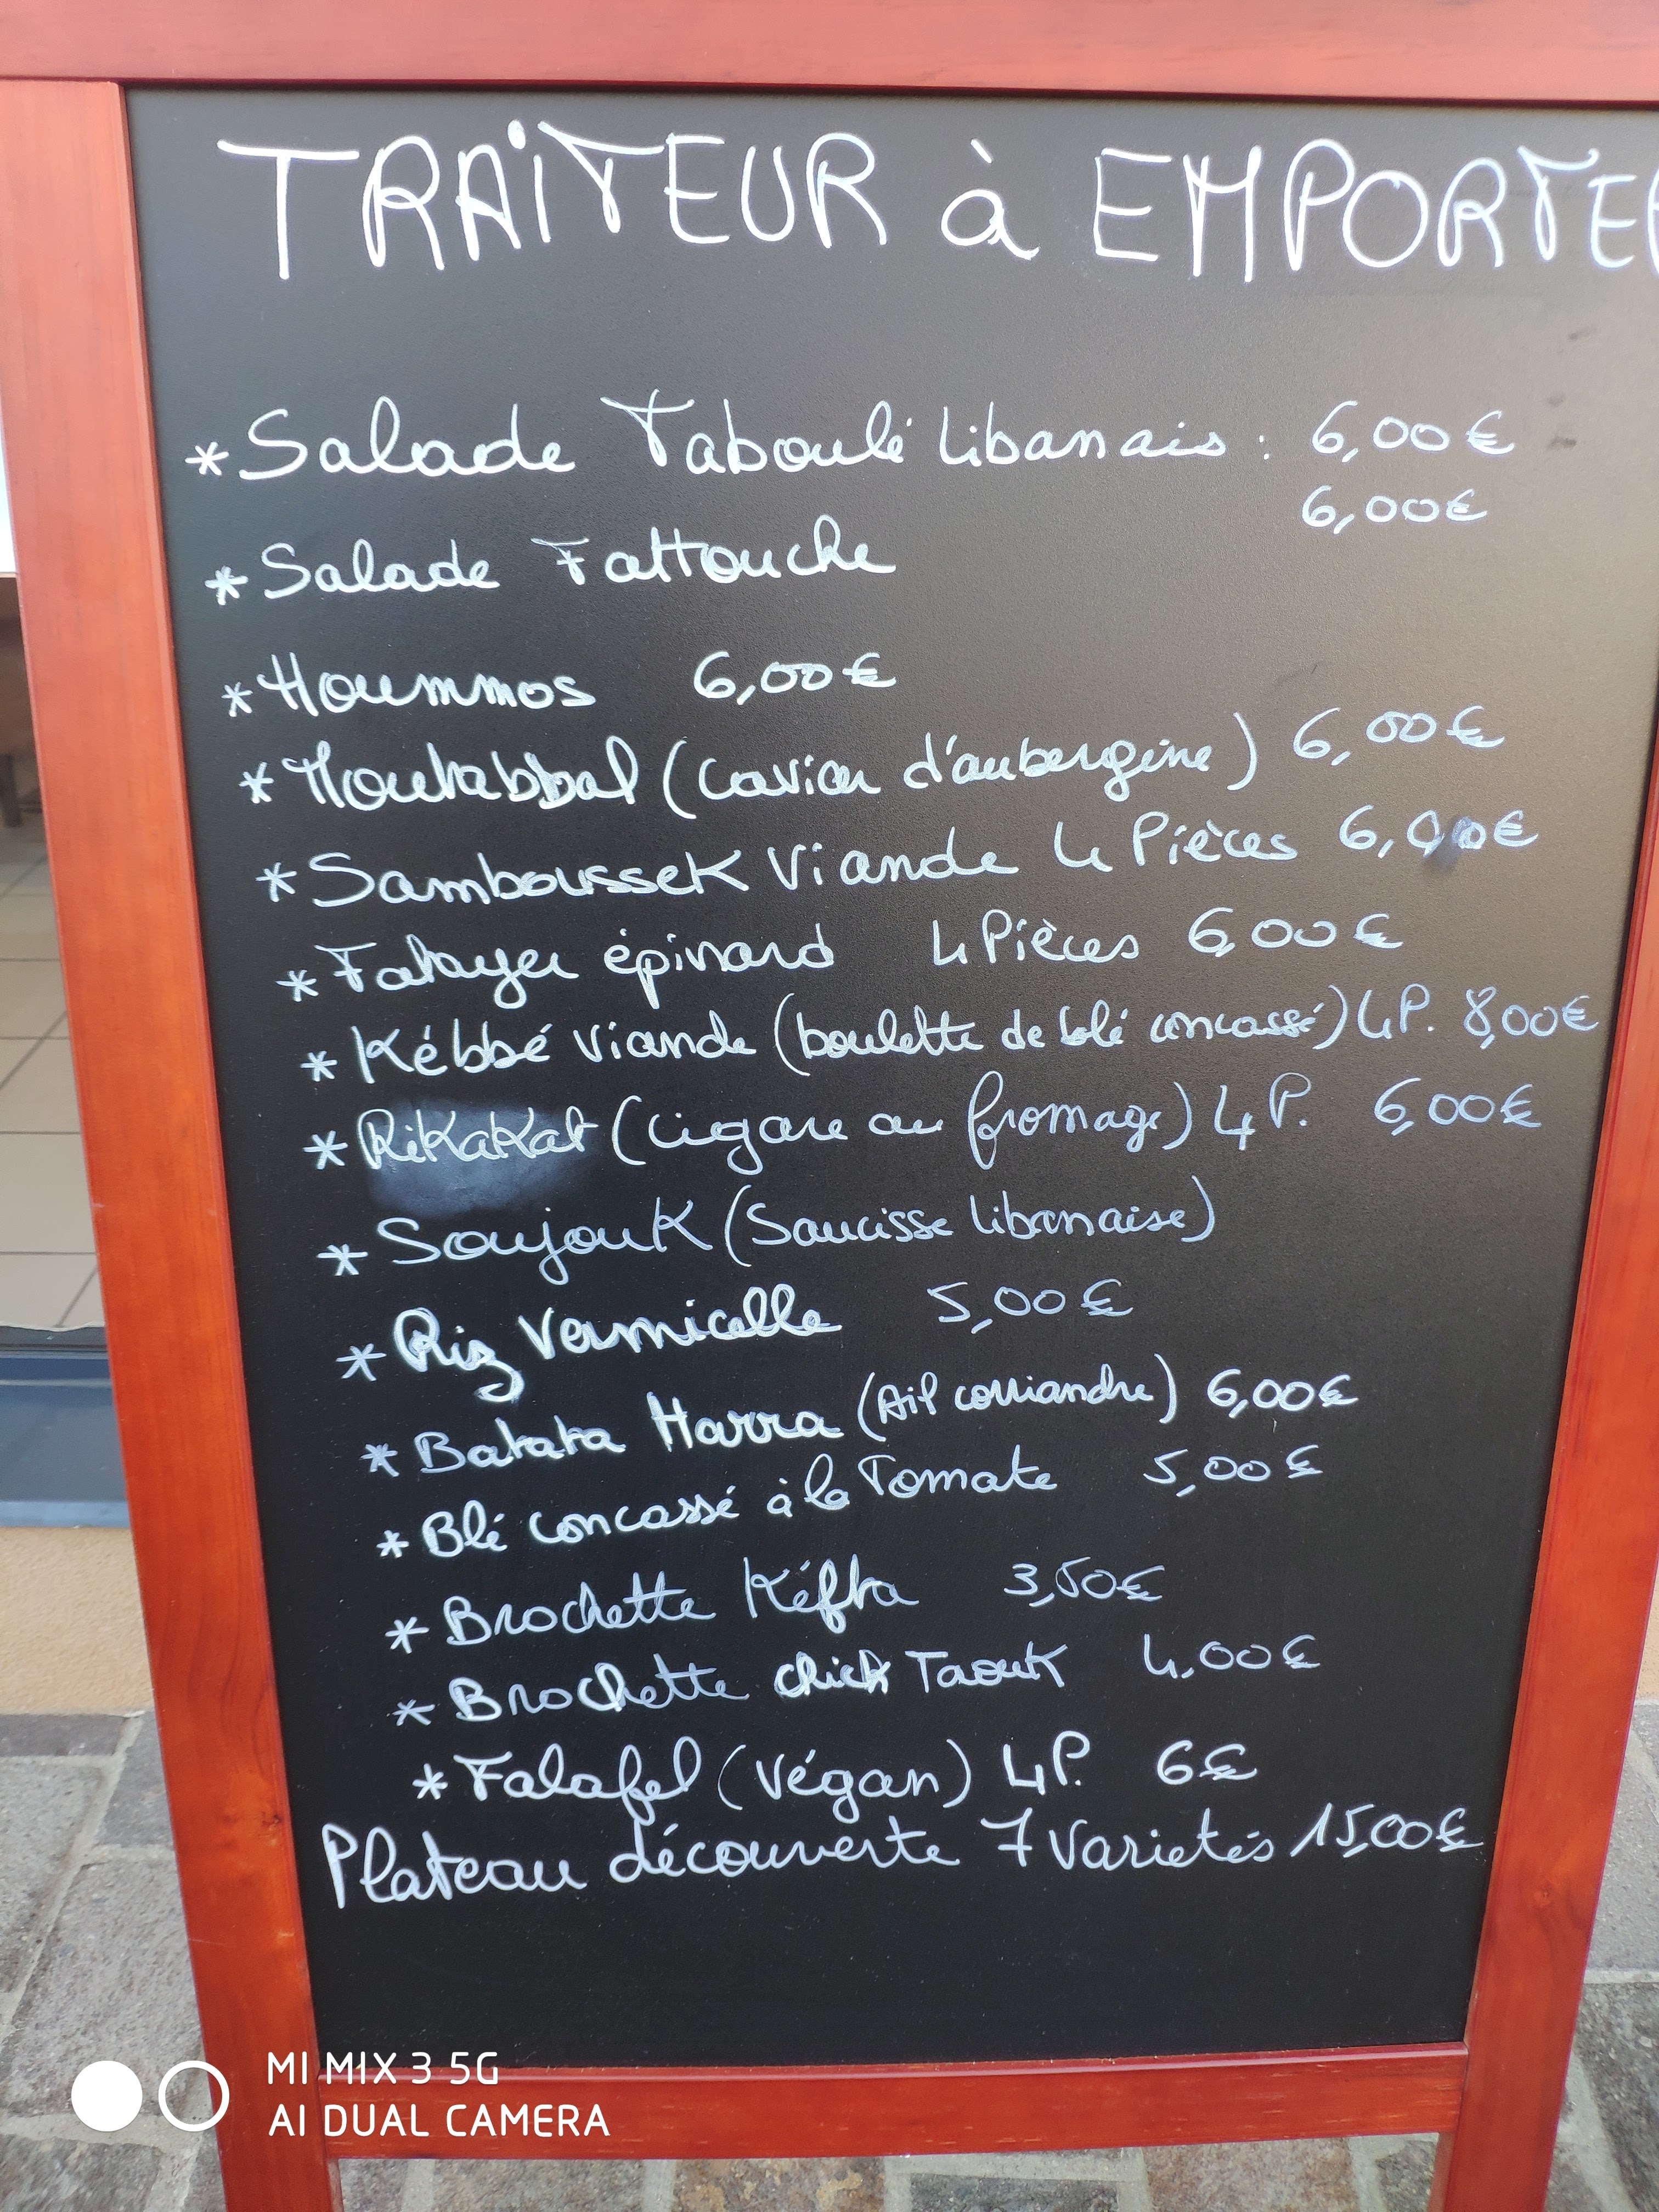 TRAITEUR à EMPORTER
* Salade Taboulé Libanais : 6,00€
6,00€
* Salade Fattouche
* Hoummos 6,00€
* Moutabbal (caviar d'aubergine) 6,00€
* Samboussek Viande 4 Pièces 6,00€
* Fatayer épinard 4 Pièces 6,00€
* Kébbé viande (boulette de blé concassé) 4P. 8,00€
* RiKaKat (cigare au fromage) 4P. 6,00€
* SoujouK (Saucisse libanaise)
* Riz Vermicelle 5,00€
* Batata Harra (Ail corriandre) 6,00€
* Blé concassé à la Tomate 5,00€
* Brochette Kéfta 3,50€
* Brochette chich Taouk 4,00€
* Falafel (végan) 4P. 6€
Plateau découverte 7 Varietés 15,00€
MI MIX 3 5G
AI DUAL CAMERA